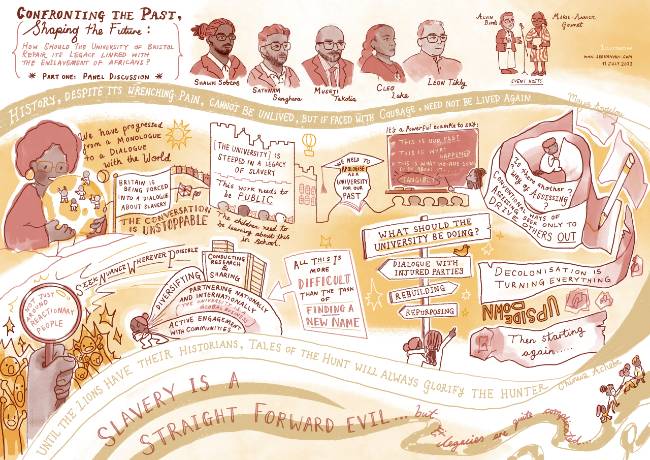 CONFRONTING THE PAST,
Shaping the Future:
HOW SHOULD THE UNIVERSITY OF BRISTOL
REPAIR ITS LEGACY LINKED WITH
THE ENSLAVEMENT OF AFRICANS?
PART ONE: PANEL DISCUSSION
SHAWN SOBERS
SATHNAM
Sanghera
MUSETI
Takolia
CLEO
Lake
LEON Tikly
ALVIN
MARIE-ANNICK
Gournet
EVENT HOSTS
11 JULY 2023
HISTORY, DESPITE ITS WRENCHING PAIN, CANNOT BE UNLIVED, BUT IF FACED WITH COURAGE, NEED NOT BE LIVED AGAIN
Maya Angelou
We have progressed
from a MONOLOGUE
to a DIALOGUE
With the World
BRITAIN IS
BEING FORCED
INTO A DIALOGUE
ABOUT SLAVERY
THE CONVERSATION
IS UNSTOPPABLE
[THE UNIVERSITY] IS
STEEPED IN A LEGACY
OF SLAVERY
This work needs to
be PUBLIC
The children need to
be learning about this
in school.
WE NEED TO
APOLOGISE
AS A
UNIVERSITY
FOR OUR
PAST
It's a Powerful example to say:
THIS IS OUR PAST
THIS IS WHAT HAPPENED
Is there another
Way of ASSESSING
CONVENTIONAL WAYS OF
ASSESSING SEEK ONLY TO
DRIVE OTHERS OUT
WHAT SHOULD THE
UNIVERSITY BE DOING?
DIALOGUE WITH
INJURED PARTIES
REBUILDING
REPURPOSING
DECOLONISATION IS
TURNING EVERYTHING
UPSIDE
DOWN
Then starting
again.....
SEEK NUANCE WHEREVER POSSIBLE
NOT JUST
AROUND
REACTIONARY
PEOPLE
DIVERSIFYING
CONDUCTING
RESEARCH
& SHARING
PARTNERING NATIONALLY
AND INTERNATIONALLY
ACTIVE ENGAGEMENT
WITH COMMUNITIES
ALL THIS IS
MORE
DIFFICULT
THAN THE TASK
OF
FINDING A
NEW NAME
UNTIL THE LIONS HAVE THEIR HISTORIANS, TALES OF THE HUNT WILL ALWAYS GLORIFY THE HUNTER
Chinua Achebe
SLAVERY IS A
STRAIGHT FORWARD EVIL... but
its legacies are quite complicated...